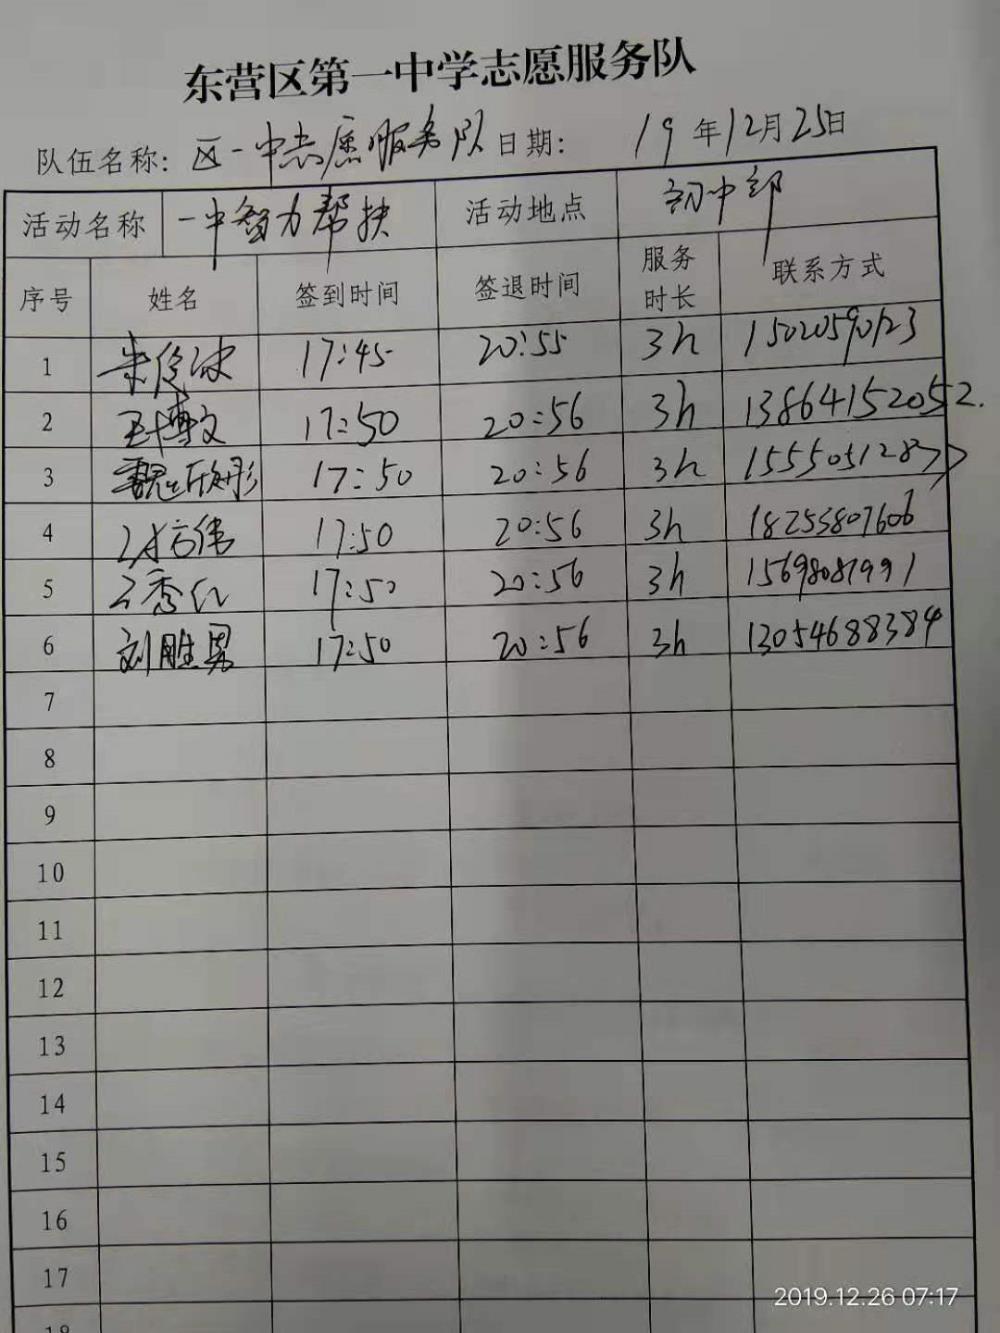 东营区第一中学志愿服务队
队伍名称: 区一中志愿服务队 日期: 19年12月25日
活动名称 一中智力帮扶 活动地点 初中部
序号 姓名 签到时间 签退时间 服务时长 联系方式
1 17:45 20:55 3h 15020590123
2 王博文 17:50 20:56 3h 13864152052.
3 魏欣彤 17:50 20:56 3h 15550512877
4 17:50 20:56 3h 18255807606
5 17:50 20:56 3h 15698087991
6 刘胜男 17:50 20:56 3h 13054688384
7
8
9
10
11
12
13
14
15
16
17
18
2019.12.26 07:17